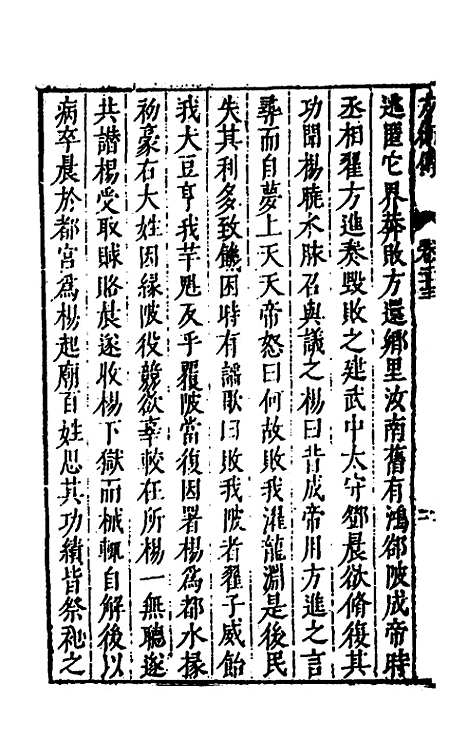 逃匿它界莽敗方還鄉里汝南舊有鴻郤陂成帝時
丞相翟方進奏毀敗之建武中太守鄧晨欲脩復其
功聞楊曉水脉召與議之楊曰昔成帝用方進之言
尋而自夢上天天帝怒曰何故敗我濯龍淵是後民
失其利多致饑困時有謡歌曰敗我陂者翟子威飴
我大豆亨我芋魁反乎覆陂當復因署楊爲都水掾
初豪右大姓因緣陂役競欲辜較在所楊一無聽遂
共譖楊受取賕賂晨遂收楊下獄而械輒自解後以
病卒晨於都宮爲楊起廟百姓思其功績皆祭祀之